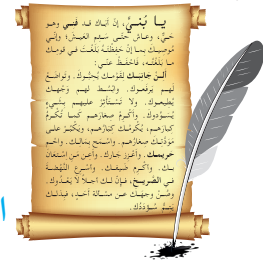 يا بُنَيَّ، إنَّ أباكَ قد فَنِيَ وهو
حَيٌّ، وعاشَ حتّى سَئِمَ العَيْشَ؛ وإنّي
مُوصيكَ بما إنْ حَفِظْتَهُ بَلَغْتَ في قومِكَ
ما بَلَغْتُه، فاحْفَظْ عنّي:
ألِنْ جانِبَكَ لقَوْمِكَ يُحِبُّوكَ. وتَواضَعْ
لهم يَرْفَعوكَ. وابْسُطْ لهم وَجْهَكَ
يُطيعوكَ. ولا تَسْتَأثِرْ عليهم بشَيْءٍ
يُسَوِّدوكَ. وأكرِمْ صِغارَهم كما تُكرِمُ
كِبارَهم، يُكْرِمْكَ كِبارُهم، ويَكْبُرْ على
مَوَدَّتِكَ صِغارُهم. واسْمَحْ بمالِكَ. واحْمِ
حَريمَكَ. وأعْزِزْ جارَكَ. وأعِنْ مَنِ اسْتَعانَ
بِكَ. وأكرِمْ ضَيفَكَ. وأسْرِعِ النَّهْضَةَ
في الصَّريخِ، فإنَّ لكَ أجلًا لا يَعْدُوكَ.
وصُنْ وجهَكَ عن مسألةِ أحدٍ، فبذلكَ
يَتِمُّ سُؤدَدُكَ.